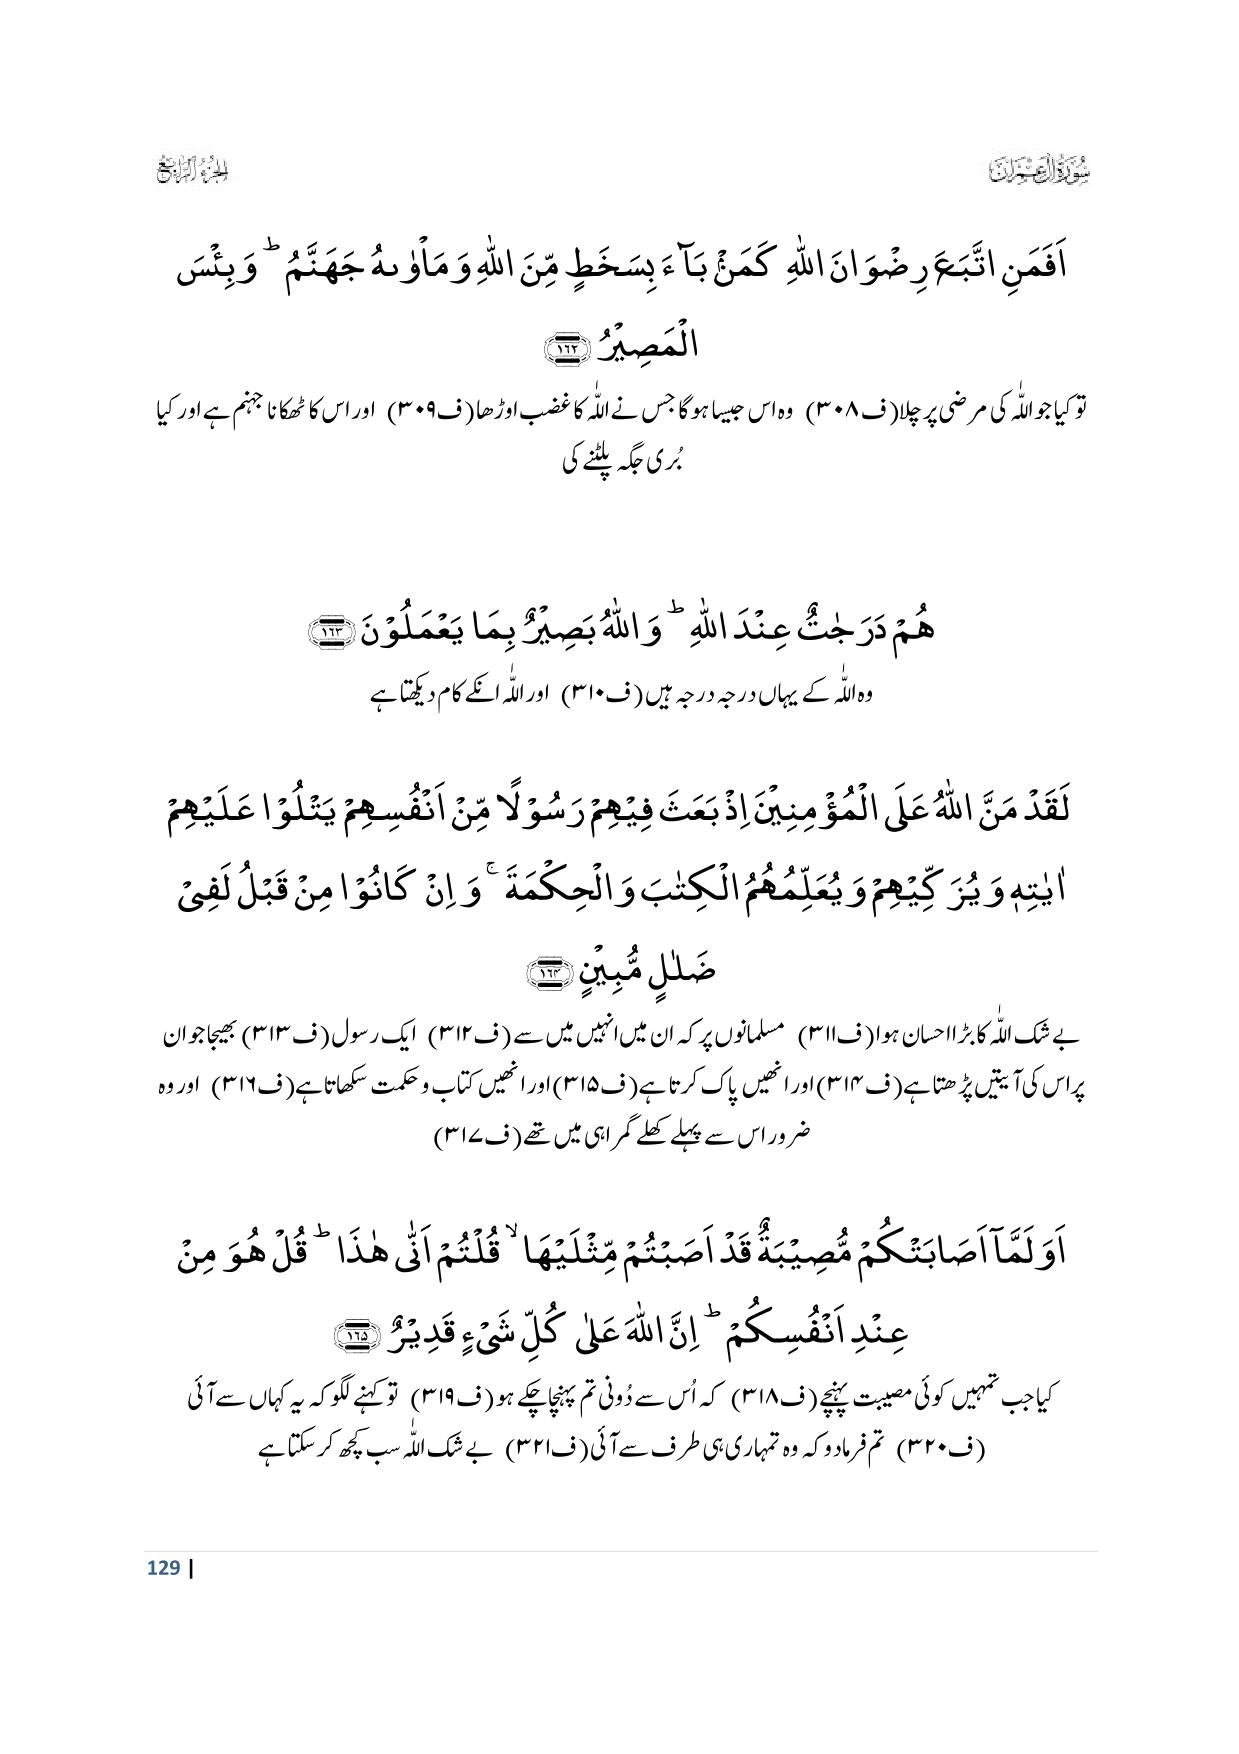 سُوْرَةُ اٰلِ عِمْرَان
الجزء الرابع
اَفَمَنِ اتَّبَعَ رِضْوَانَ اللّٰهِ كَمَنْۢ بَآءَ بِسَخَطٍ مِّنَ اللّٰهِ وَ مَاْوٰىهُ جَهَنَّمُ ؕ وَ بِئْسَ
الْمَصِیْرُ ۱۶۲
تو کیا جو اللّٰہ کی مرضی پر چلا (ف۳۰۸) وہ اس جیسا ہوگا جس نے اللّٰہ کا غضب اوڑھا (ف۳۰۹) اور اس کا ٹھکانا جہنم ہے اور کیا
بُری جگہ پلٹنے کی
هُمْ دَرَجٰتٌ عِنْدَ اللّٰهِ ؕ وَ اللّٰهُ بَصِیْرٌۢ بِمَا یَعْمَلُوْنَ ۱۶۳
وہ اللّٰہ کے یہاں درجہ درجہ ہیں (ف۳۱۰) اور اللّٰہ انکے کام دیکھتا ہے
لَقَدْ مَنَّ اللّٰهُ عَلَى الْمُؤْمِنِیْنَ اِذْ بَعَثَ فِیْهِمْ رَسُوْلًا مِّنْ اَنْفُسِهِمْ یَتْلُوْا عَلَیْهِمْ
اٰیٰتِهٖ وَ یُزَكِّیْهِمْ وَ یُعَلِّمُهُمُ الْكِتٰبَ وَ الْحِكْمَةَ ۚ وَ اِنْ كَانُوْا مِنْ قَبْلُ لَفِیْ
ضَلٰلٍ مُّبِیْنٍ ۱۶۴
بے شک اللّٰہ کا بڑا احسان ہوا (ف۳۱۱) مسلمانوں پر کہ ان میں انہیں میں سے (ف۳۱۲) ایک رسول (ف۳۱۳) بھیجا جو ان
پر اس کی آیتیں پڑھتا ہے (ف۳۱۴) اور انھیں پاک کرتا ہے (ف۳۱۵) اور انھیں کتاب و حکمت سکھاتا ہے (ف۳۱۶) اور وہ
ضرور اس سے پہلے کھلے گمراہی میں تھے (ف۳۱۷)
اَوَ لَمَّاۤ اَصَابَتْكُمْ مُّصِیْبَةٌ قَدْ اَصَبْتُمْ مِّثْلَیْهَا ۙ قُلْتُمْ اَنّٰى هٰذَا ؕ قُلْ هُوَ مِنْ
عِنْدِ اَنْفُسِكُمْ ؕ اِنَّ اللّٰهَ عَلٰى كُلِّ شَیْءٍ قَدِیْرٌ ۱۶۵
کیا جب تمہیں کوئی مصیبت پہنچے (ف۳۱۸) کہ اُس سے دُونی تم پہنچا چکے ہو (ف۳۱۹) تو کہنے لگو کہ یہ کہاں سے آئی
(ف۳۲۰) تم فرما دو کہ وہ تمہاری ہی طرف سے آئی (ف۳۲۱) بے شک اللّٰہ سب کچھ کر سکتا ہے
129 |